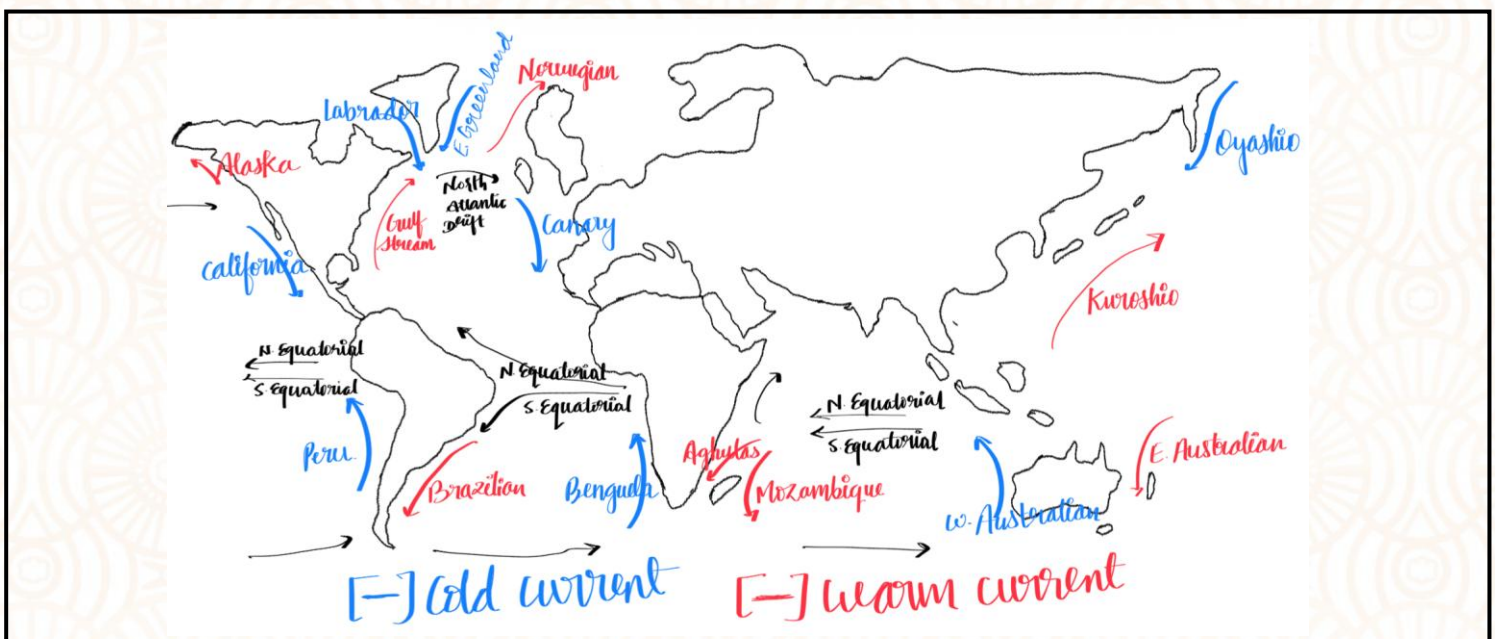 Norwegian
E. Greenland
Labrador
Oyashio
Alaska
North
Atlantic
Drift
Gulf
Stream
Canary
California
Kuroshio
N. Equatorial
S. Equatorial
N. Equatorial
S. Equatorial
N. Equatorial
S. Equatorial
Peru
Brazilian
Benguela
Aghulas
Mozambique
E. Australian
W. Australian
[—] Cold current
[—] Warm current